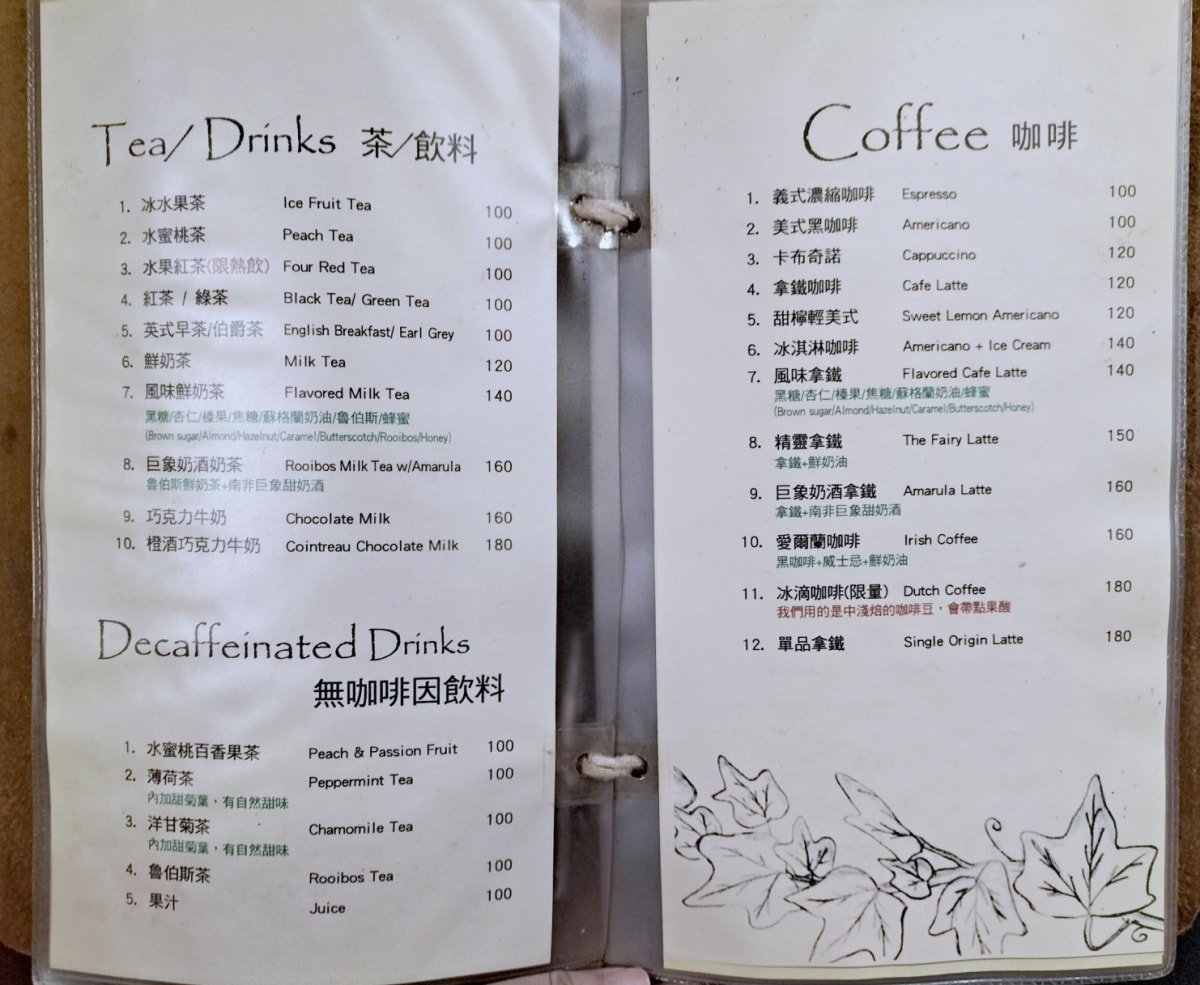 Tea/ Drinks 茶/飲料
1. 冰水果茶 Ice Fruit Tea 100
2. 水蜜桃茶 Peach Tea 100
3. 水果紅茶(限熱飲) Four Red Tea 100
4. 紅茶 / 綠茶 Black Tea/ Green Tea 100
5. 英式早茶/伯爵茶 English Breakfast/ Earl Grey 100
6. 鮮奶茶 Milk Tea 120
7. 風味鮮奶茶 Flavored Milk Tea 140
黑糖/杏仁/榛果/焦糖/蘇格蘭奶油/魯伯斯/蜂蜜
(Brown sugar/Almond/Hazelnut/Caramel/Butterscotch/Rooibos/Honey)
8. 巨象奶酒奶茶 Rooibos Milk Tea w/Amarula 160
魯伯斯鮮奶茶+南非巨象甜奶酒
9. 巧克力牛奶 Chocolate Milk 160
10. 橙酒巧克力牛奶 Cointreau Chocolate Milk 180
Decaffeinated Drinks
無咖啡因飲料
1. 水蜜桃百香果茶 Peach & Passion Fruit 100
2. 薄荷茶 Peppermint Tea 100
內加甜菊葉，有自然甜味
3. 洋甘菊茶 Chamomile Tea 100
內加甜菊葉，有自然甜味
4. 魯伯斯茶 Rooibos Tea 100
5. 果汁 Juice 100
Coffee 咖啡
1. 義式濃縮咖啡 Espresso 100
2. 美式黑咖啡 Americano 100
3. 卡布奇諾 Cappuccino 120
4. 拿鐵咖啡 Cafe Latte 120
5. 甜檸輕美式 Sweet Lemon Americano 120
6. 冰淇淋咖啡 Americano + Ice Cream 140
7. 風味拿鐵 Flavored Cafe Latte 140
黑糖/杏仁/榛果/焦糖/蘇格蘭奶油/蜂蜜
(Brown sugar/Almond/Hazelnut/Caramel/Butterscotch/Honey)
8. 精靈拿鐵 The Fairy Latte 150
拿鐵+鮮奶油
9. 巨象奶酒拿鐵 Amarula Latte 160
拿鐵+南非巨象甜奶酒
10. 愛爾蘭咖啡 Irish Coffee 160
黑咖啡+威士忌+鮮奶油
11. 冰滴咖啡(限量) Dutch Coffee 180
我們用的是中淺焙的咖啡豆，會帶點果酸
12. 單品拿鐵 Single Origin Latte 180